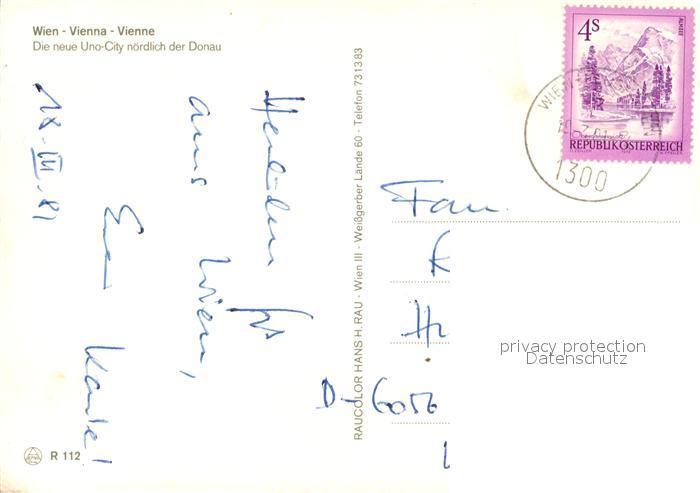 Wien - Vienna - Vienne
Die neue Uno-City nördlich der Donau
18.III.81
Herzlichen
aus Wien,
Euer
R 112
RAUCOLOR HANS H. RAU - Wien III - Weißgerber Lände 60 - Telefon 731383
4S
ALMSEE
REPUBLIK ÖSTERREICH
WIEN
1300
Fam.
D-6056
privacy protection
Datenschutz